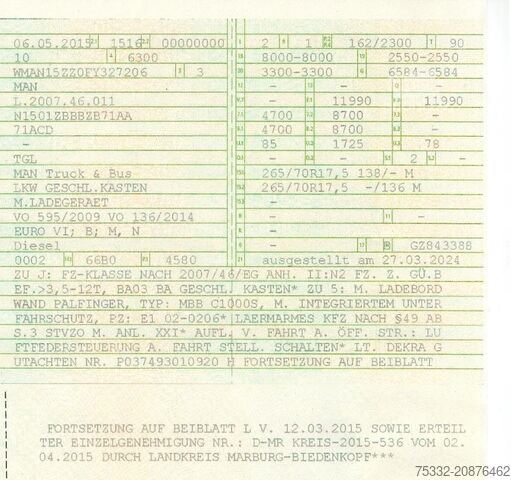 06.05.2015 2.1 1516 2.2 00000000 L 2 9 1 P.2 P.4 162/2300 T 90
10 4 6300 18 8000-8000 19 2550-2550
WMAN15ZZ0FY327206 3 3 20 3300-3300 G 6584-6584
MAN - - -
L.2007.46.011 - 11990 11990
N1501ZBBBZB71AA 4700 8700 -
71ACD 4700 8700 -
- 85 1725 78
TGL - - 2 -
MAN Truck & Bus 265/70R17,5 138/- M
LKW GESCHL.KASTEN 265/70R17,5 -/136 M
M.LADEGERAET -
VO 595/2009 VO 136/2014 - -
EURO VI; B; M, N -
Diesel - GZ843388
0002 66B0 4580 ausgestellt am 27.03.2024
ZU J: FZ-KLASSE NACH 2007/46/EG ANH. II:N2 FZ. Z. GÜ.B
EF.>3,5-12T, BA03 BA GESCHL. KASTEN* ZU 5: M. LADEBORD
WAND PALFINGER, TYP: MBB C1000S, M. INTEGRIERTEM UNTER
FAHRSCHUTZ, PZ: E1 02-0206* LAERMARMES KFZ NACH §49 AB
S.3 STVZO M. ANL. XXI* AUFL. V. FAHRT A. ÖFF. STR.: LU
FTFEDERSTEUERUNG A. FAHRT STELL. SCHALTEN* LT. DEKRA G
UTACHTEN NR. P037493010920 H FORTSETZUNG AUF BEIBLATT
FORTSETZUNG AUF BEIBLATT L V. 12.03.2015 SOWIE ERTEIL
TER EINZELGENEHMIGUNG NR.: D-MR KREIS-2015-536 VOM 02.
04.2015 DURCH LANDKREIS MARBURG-BIEDENKOPF***
75332-20876462